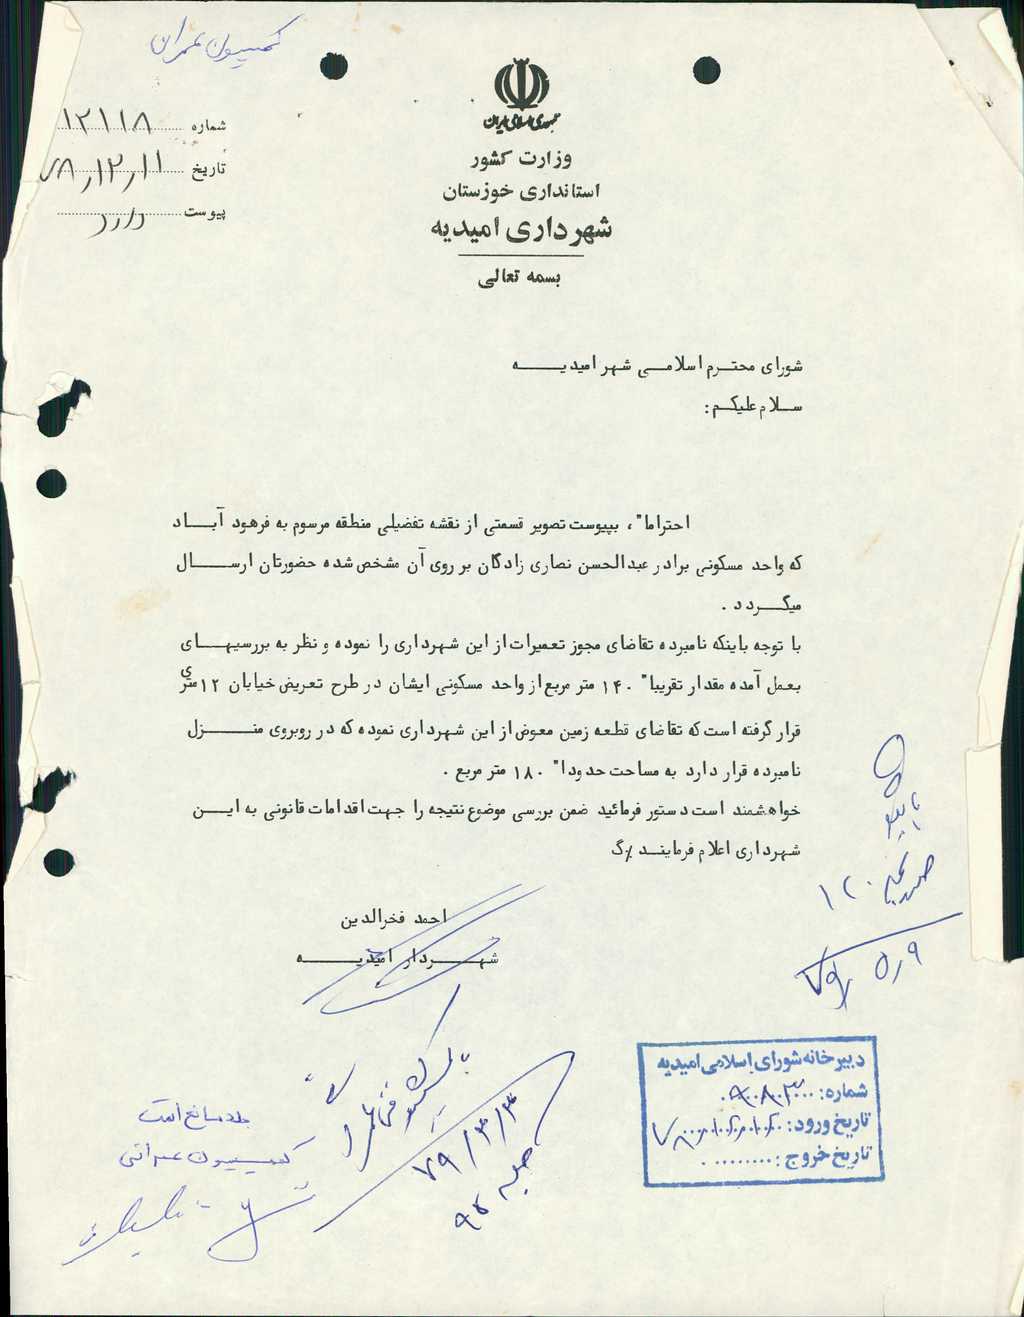 کمیسیون عمران
شماره ۱۲۱۱۸
تاریخ ۷۸٫۱۲٫۱۱
پیوست دارد
جمهوری اسلامی ایران
وزارت کشور
استانداری خوزستان
شهرداری امیدیه
بسمه تعالی
شورای محتـرم اسلامـی شهر امیدیـــه
سـلام علیکـم:
احتراما"، بپیوست تصویر قسمتی از نقشه تفضیلی منطقه مرسوم به فرهود آبـــاد
که واحد مسکونی برادر عبدالحسن نصاری زادگان بر روی آن مشخص شده حضورتان ارســـال
میگـردد .
با توجه باینکه نامبرده تقاضای مجوز تعمیرات از این شهرداری را نموده و نظر به بررسیهـــای
بعمل آمده مقدار تقریبا" ۱۴۰ متر مربع از واحد مسکونی ایشان در طرح تعریض خیابان ۱۲متری
قرار گرفته است که تقاضای قطعه زمین معوض از این شهرداری نموده که در روبروی منـــزل
نامبرده قرار دارد به مساحت حدودا" ۱۸۰ متر مربع .
خواهشمند است دستور فرمائید ضمن بررسی موضوع نتیجه را جهت اقدامات قانونی به ایـــن
شهرداری اعلام فرمایند
احمد فخرالدین
شهـــردار امیدیـــه
۱۲۰
۷۹٫۵٫۹
دبیرخانه شورای اسلامی امیدیه
شماره:
تاریخ ورود:
تاریخ خروج: .........
کمیسیون فنی
۷۹/۳/۳
کمیسیون عمرانی